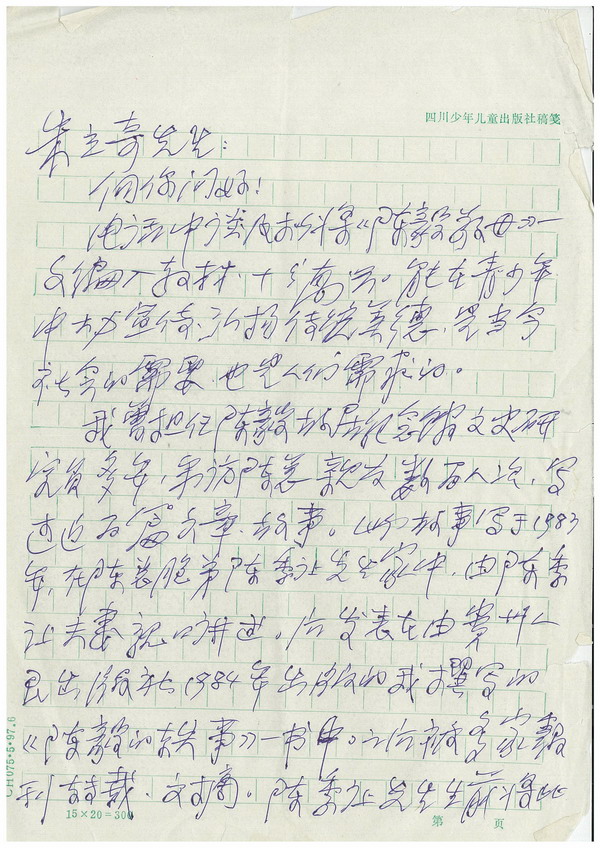 四川少年儿童出版社稿笺
朱立奇先生:
向你问好!
电话中谈及市将《陈毅敬母》一
文编入教材,十分高兴。能在青少年
中大力宣传、弘扬传统美德,是当今
社会的需要,也是人们需求的。
我曾担任陈毅故居纪念馆文史研
究员多年,采访陈总亲友数百人次,写
过近百篇文章、故事。此故事写于1983
年,在陈总胞弟陈季让先生家中,由陈季
让夫妻亲口讲过。后发表在由贵州人
民出版社1984年出版的我撰写的
《陈毅的轶事》一书中。之后被多家报
刊转载、文摘。陈季让先生生前将此
CH075·5·97.6
15×20=300
第 页